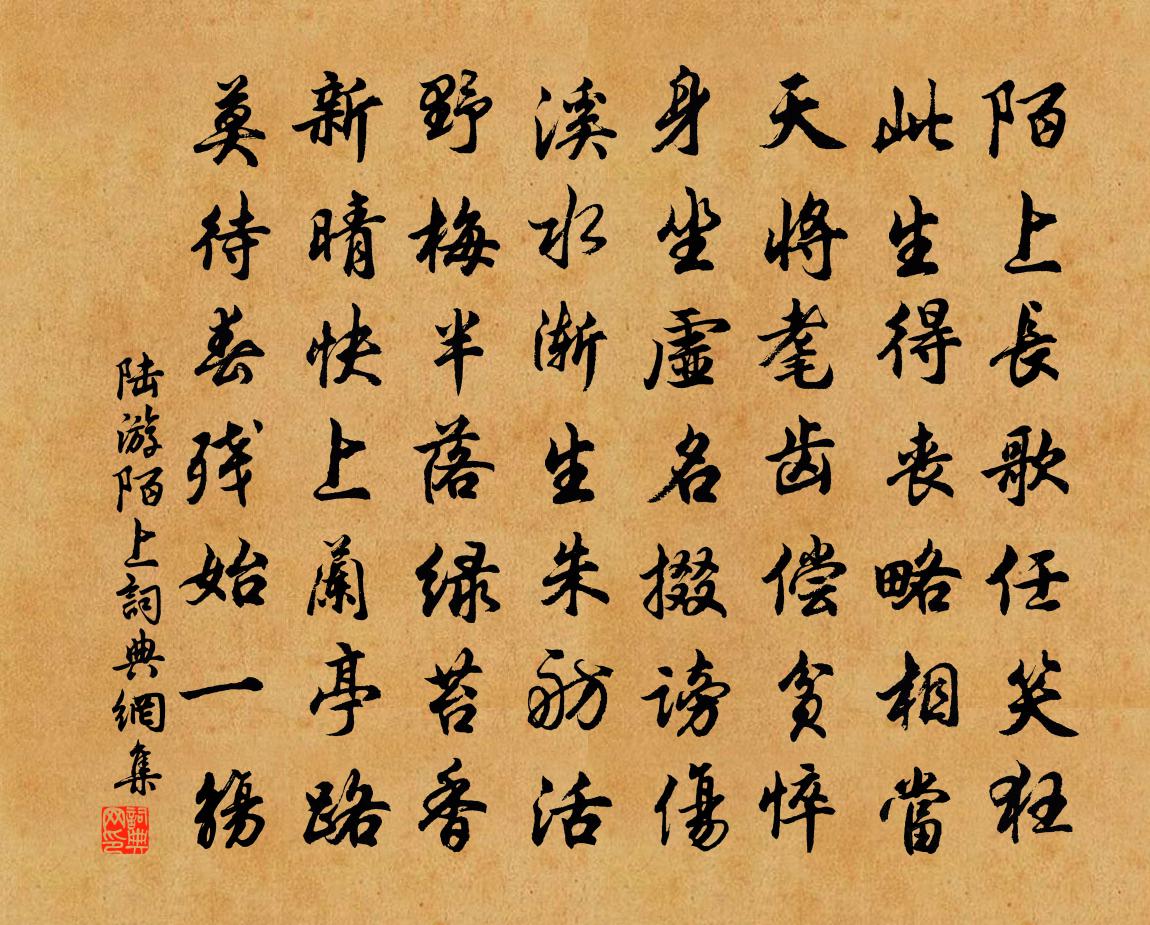 陌上長歌任笑狂
此生得丧略相當
天将耄齿偿貧悴
身坐虛名掇謗傷
溪水渐生朱舫活
野梅半落绿苔香
新晴快上蘭亭路
莫待春残始一觴
陆游陌上詞典網集
詞典网印